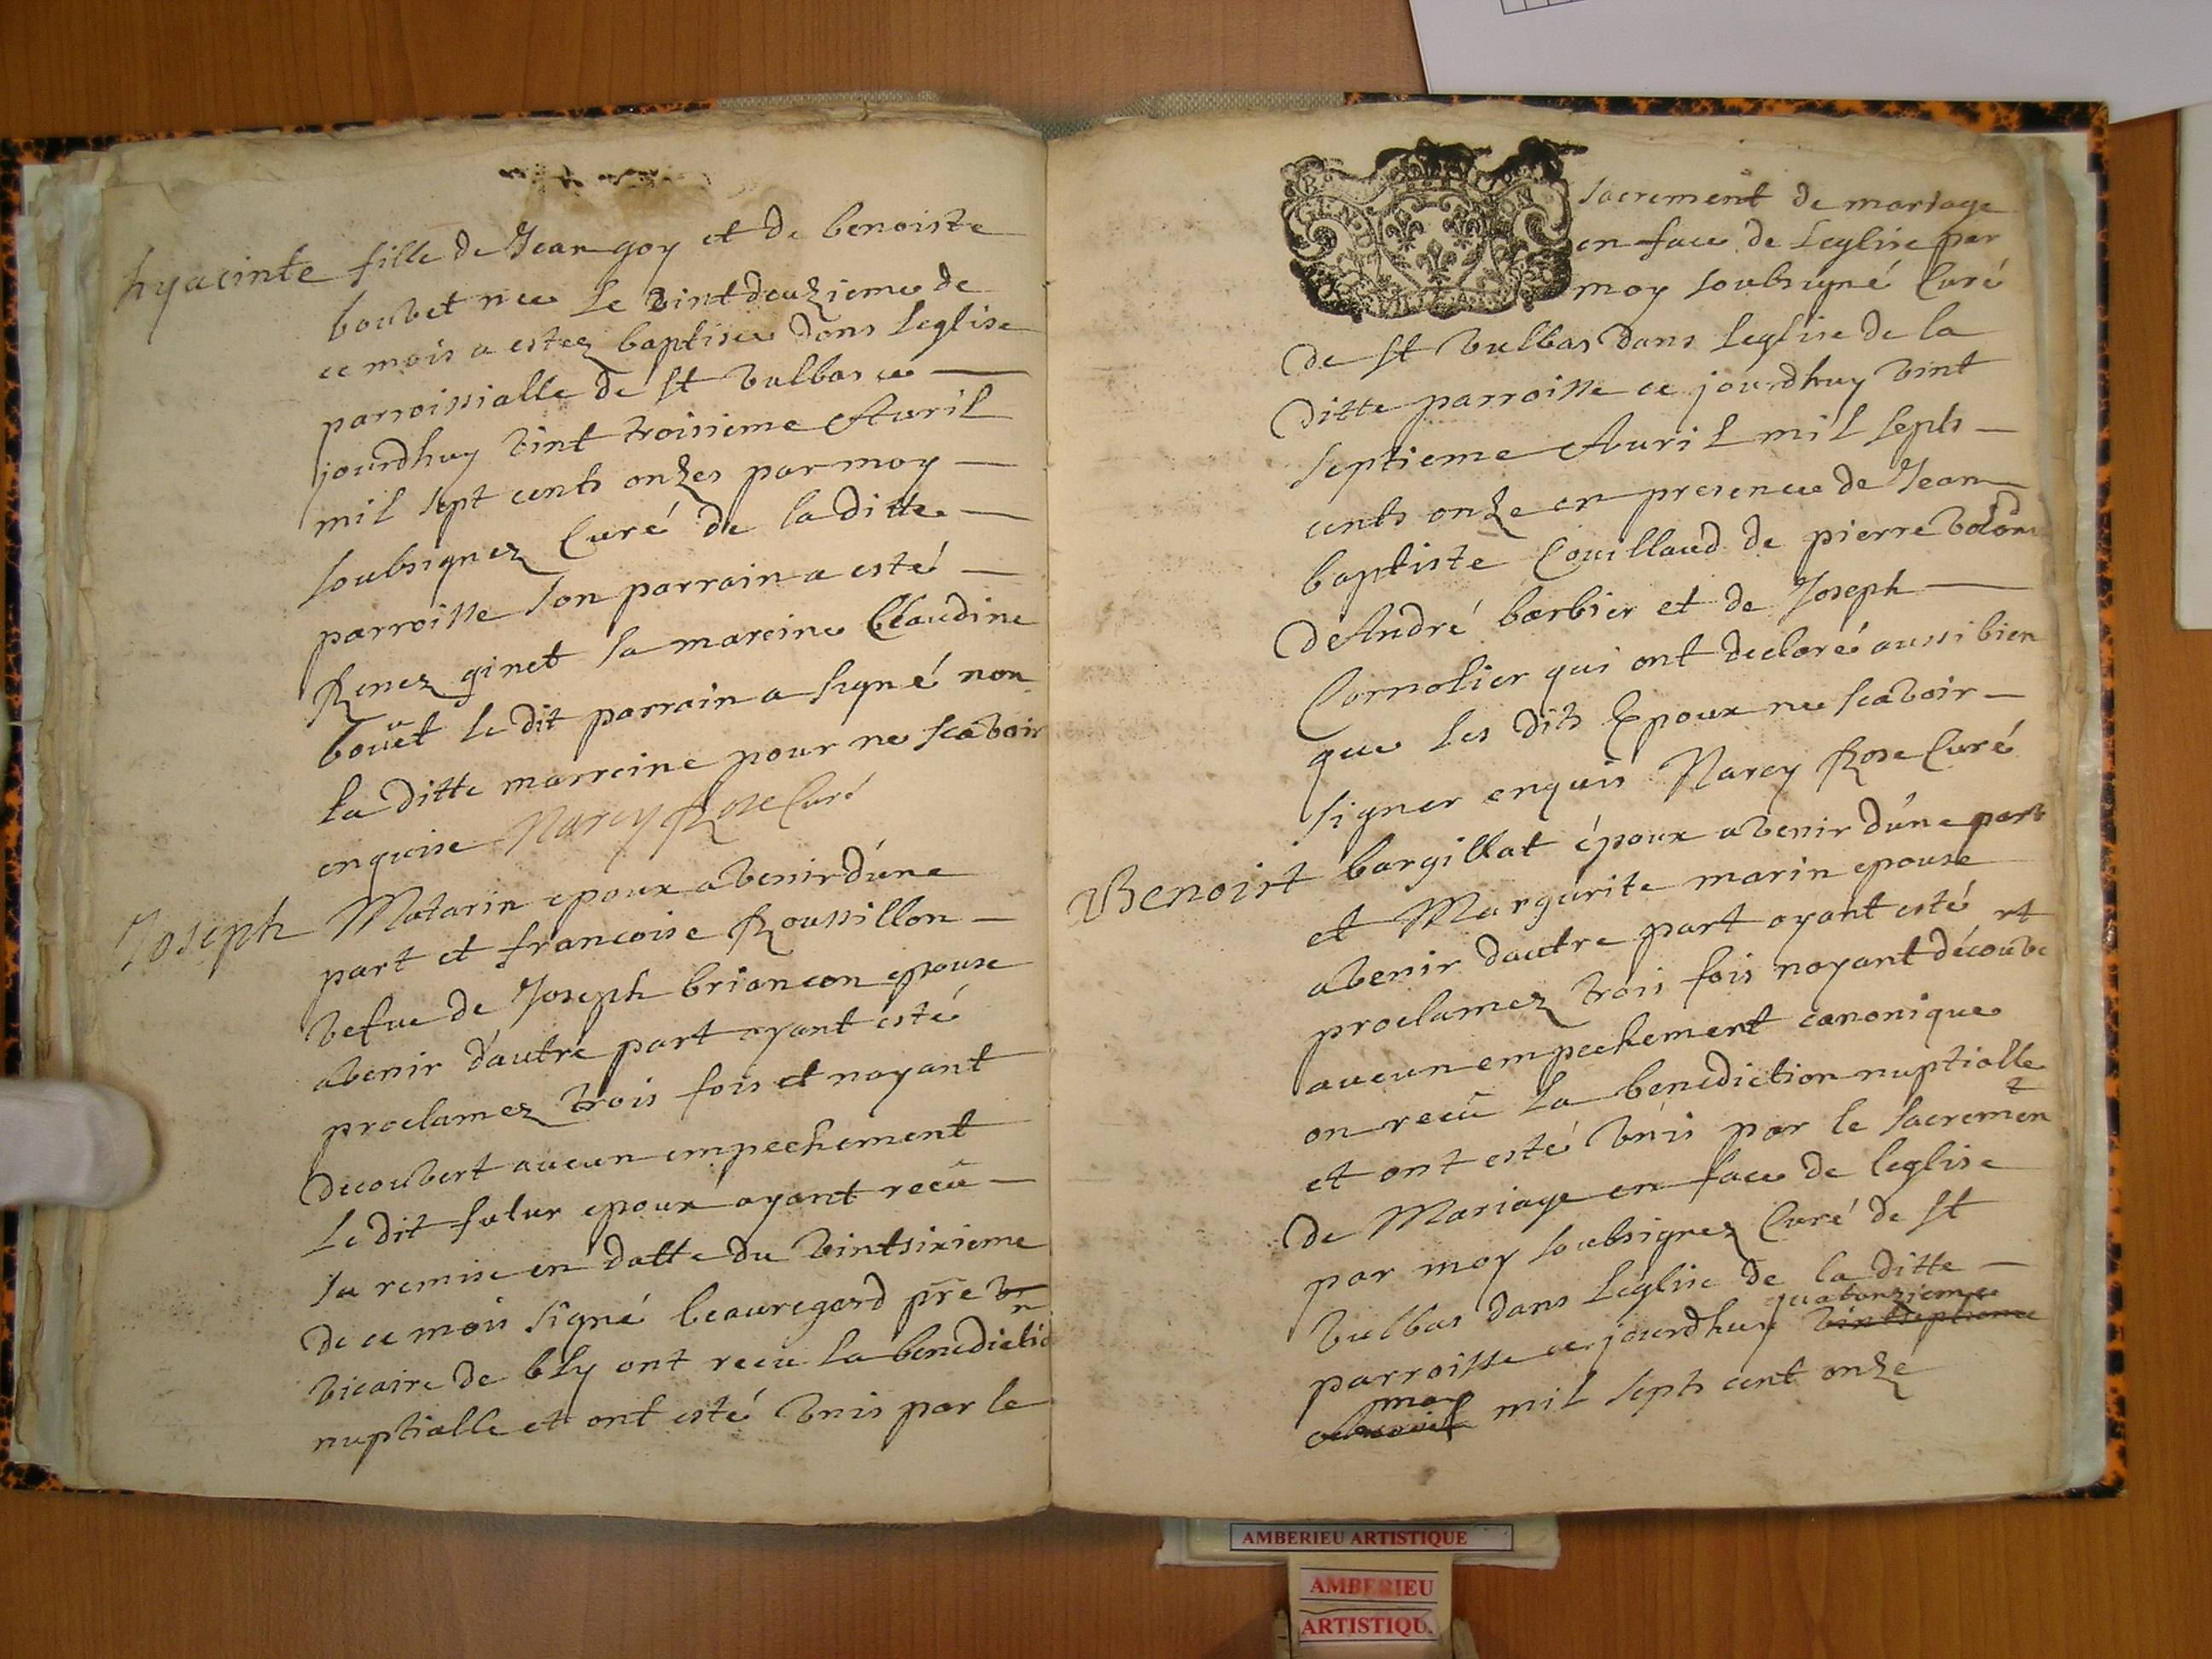 hyacinte fille de Jean goy et de benoiste
bouvet nee le vint deuzieme de
ce mois a estez baptisee dans leglise
parroissialle de st vulbas ce
jourdhuy vint troisieme Avril
mil sept cents onzes par moy
soubsignez Curé de la ditte
parroisse son parrain a esté
Renez ginet sa mareine Claudine
bouvet le dit parrain a signé non
la ditte marreine pour ne scavoir
enquise Narcy Rose Curé
Joseph Matarin epoux avenir d'une
part et francoise Roussillon
vefue de Joseph briancon epouse
avenir d'autre part ayant esté
proclamez trois fois et nayant
decouvert aucun empechement
Le dit futur epoux ayant recû
sa remise en datte du vintsixieme
de ce mois signé beauregard pre
vicaire de bly ont receu la benediction
nuptialle et ont esté vnis par le
sacrement de mariage
en face de Leglise par
moy soubsigné Curé
GEN BO ON
de st vulbas dans leglise de la
ditte parroisse ce jourdhuy vint
septieme Avril mil septs
cents onze en presence de Jean
baptiste Couillaud de pierre
de André barbier et de Joseph
Cornolier qui ont declaré aussi bien
que les dits Epoux ne scavoir
signer enquis Narcy Rose Curé
Benoist bargillat époux avenir d'une part
et Margurite marin epouse
avenir dautre part ayant esté
proclamez trois fois nayant découvert
aucun empechement canonique
on recû la benediction nuptialle
et ont esté vnis par le sacrement
de Mariage en face de leglise
par moy soubsignez Curé de st
vulbas dans Leglise de la ditte
parroisse ce jourdhuy quatorzieme vintseptieme
may mil septs cent onze
AMBERIEU ARTISTIQUE
AMBERIEU
ARTISTIQU